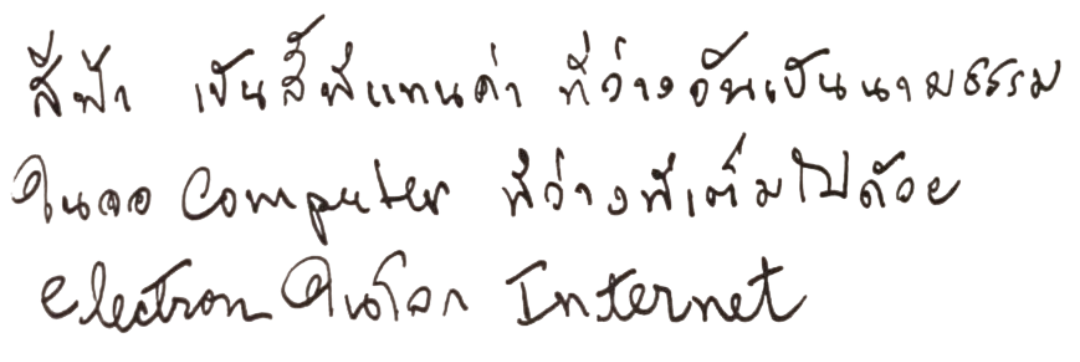 สีฟ้า เป็นสีที่แทนค่า ที่ว่างอันเป็นนามธรรม
ในจอ Computer ที่ว่างที่เต็มไปด้วย
electron ในโลก Internet